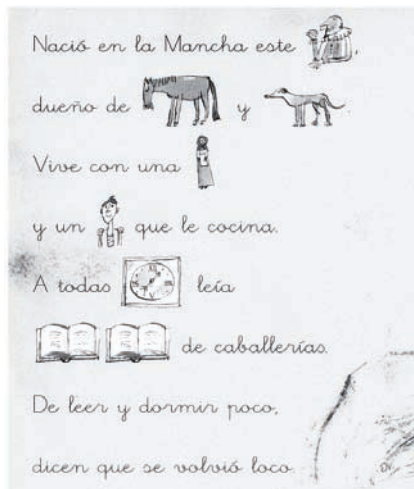 Nació en la Mancha este ,
dueño de y
Vive con una
y un que le cocina.
A todas leía
de caballerías.
De leer y dormir poco,
dicen que se volvió loco